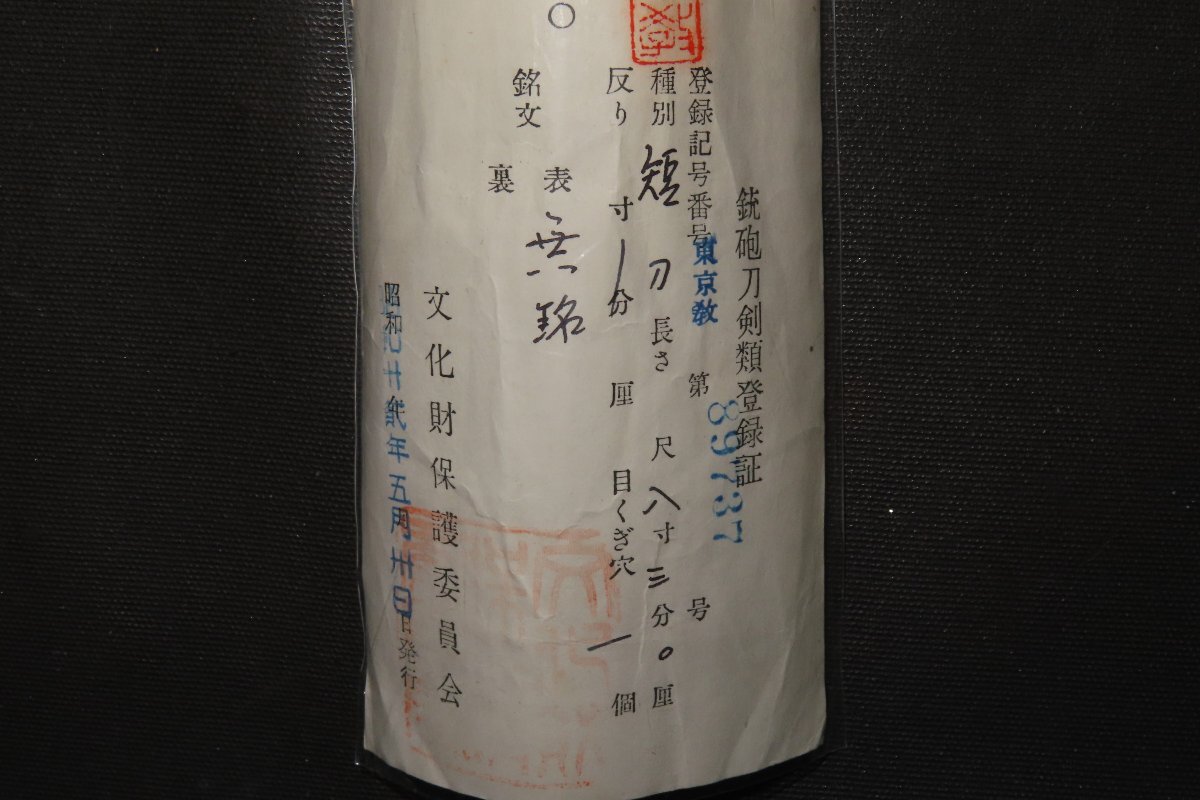 銃砲刀剣類登録証
登録記号番号 東京教 第 89737 号
種別 短刀 長さ 尺 八寸 三分 〇厘
反り 寸 一分 厘 目くぎ穴 一 個
銘文 表 無銘
裏
〇
文化財保護委員会
昭和卅弐年五月卅日発行